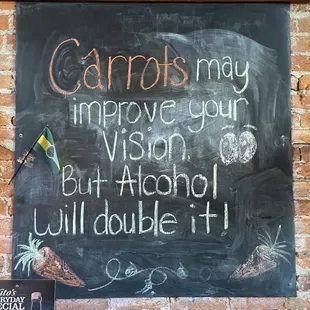 Carrots may
improve your
Vision.
But Alcohol
will double it!
ito's
RYDAY
ECIAL